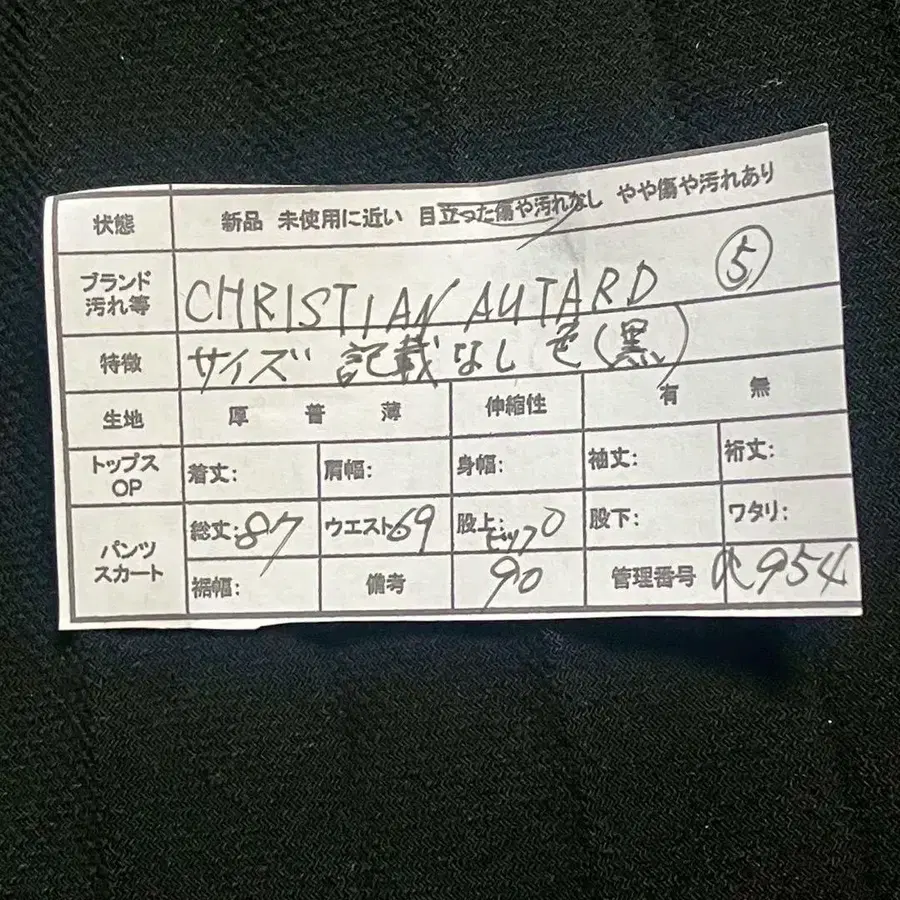 状態 新品 未使用に近い 目立った傷や汚れなし やや傷や汚れあり
ブランド 汚れ等 CHRISTIAN AUTARD ⑤
特徴 サイズ 記載なし 色(黒)
生地 厚 普 薄 伸縮性 有 無
トップス OP 着丈: 肩幅: 身幅: 袖丈: 裄丈:
パンツ スカート 総丈:87 ウエスト69 股上: ヒップ 股下: ワタリ:
裾幅: 備考 90 管理番号 954